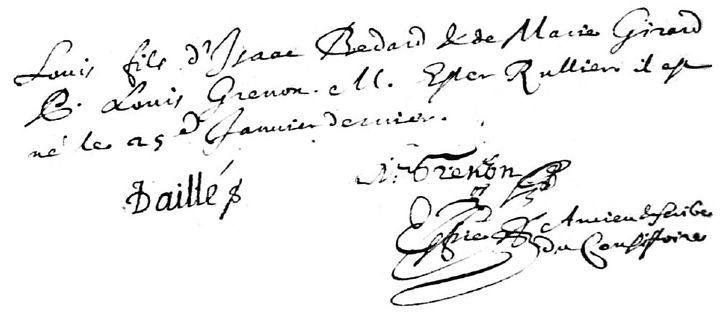 Louis fils d'Isaac Bedard & de Marie Girard
P. Louis Grenon. M. Ester Rullier il est
né le 25e Janvier dernier.
Daillé
Grenon
Ancien & scribe
du Consistoire